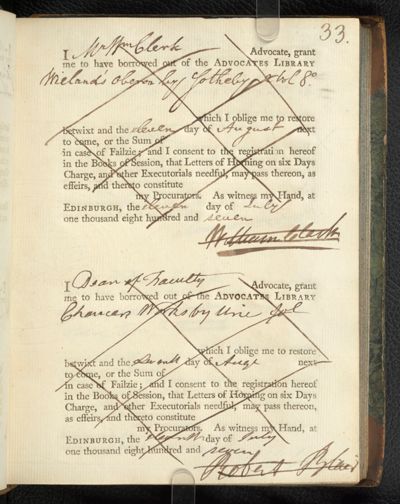 33.
I Mr Wm Clerk Advocate, grant
me to have borrowed out of the ADVOCATES LIBRARY
Wieland's Oberon by Sotheby 2 Vol 8o
which I oblige me to restore
betwixt and the eleven day of August next
to come, or the Sum of
in case of Failzie; and I consent to the registration hereof
in the Books of Session, that Letters of Horning on six Days
Charge, and other Executorials needful, may pass thereon, as
effeirs, and thereto constitute
my Procurators. As witness my Hand, at
EDINBURGH, the eleven day of July
one thousand eight hundred and seven
William Clerk
I Dean of Faculty Advocate, grant
me to have borrowed out of the ADVOCATES LIBRARY
Chaucers Works by Urie fol
which I oblige me to restore
betwixt and the day of Augt next
to come, or the Sum of
in case of Failzie; and I consent to the registration hereof
in the Books of Session, that Letters of Horning on six Days
Charge, and other Executorials needful, may pass thereon,
as effeirs, and thereto constitute
my Procurators. As witness my Hand, at
EDINBURGH, the day of July
one thousand eight hundred and seven
Robert Blair